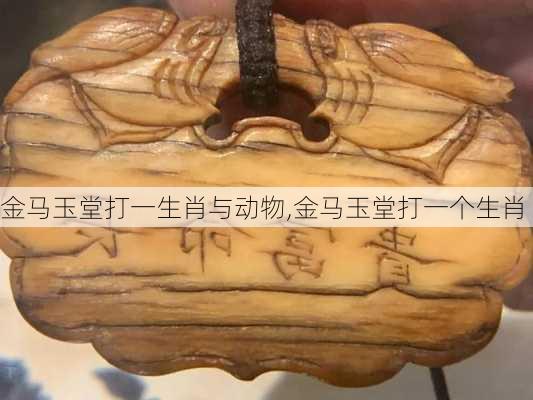 金马玉堂打一生肖与动物,金马玉堂打一个生肖
命富貴